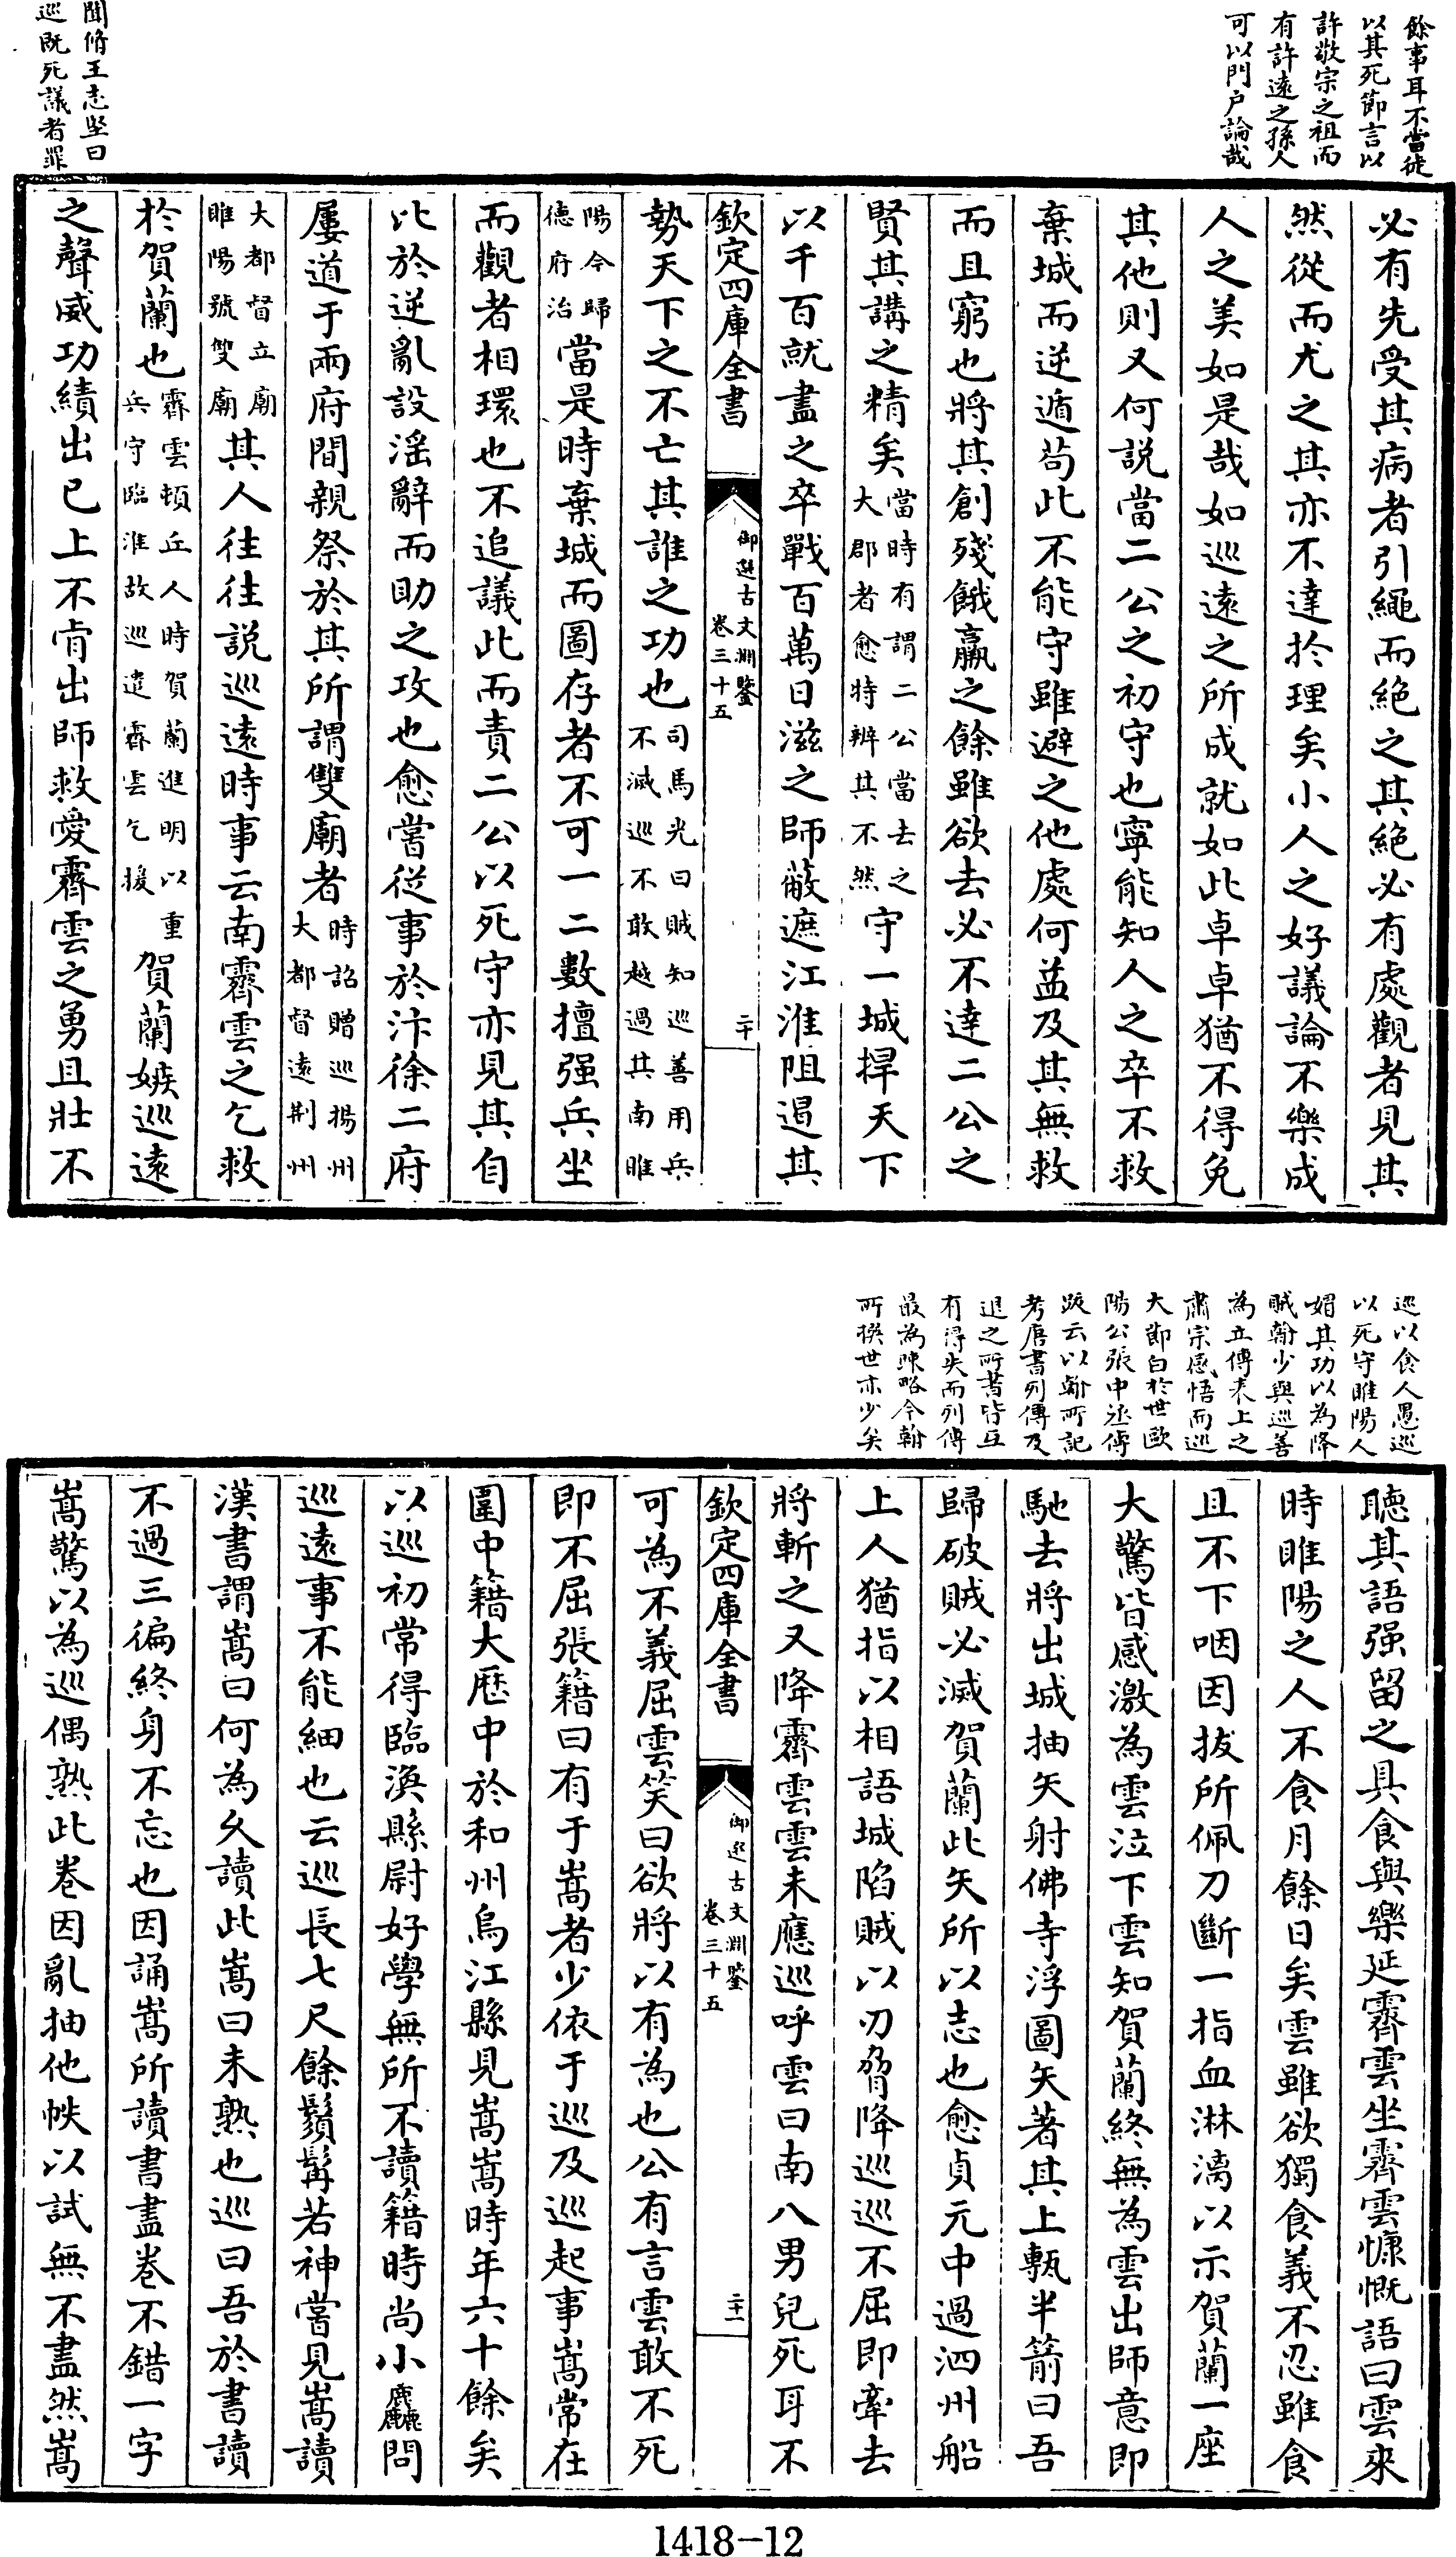 餘事耳不當徒
以其死節言以
許敬宗之祖而
有許遠之孫人
可以門户論哉
聞脩王志堅曰
巡既死議者罪
必有先受其病者引繩而絶之其絶必有處觀者見其
然從而尤之其亦不達於理矣小人之好議論不樂成
人之美如是哉如巡遠之所成就如此卓卓猶不得免
其他則又何説當二公之初守也寧能知人之卒不救
棄城而逆遁苟此不能守雖避之他處何益及其無救
而且窮也將其創殘餓羸之餘雖欲去必不達二公之
賢其講之精矣當時有謂二公當去之大郡者愈特辨其不然守一城捍天下
以千百就盡之卒戰百萬日滋之師蔽遮江淮阻遏其
欽定四庫全書
御選古文淵鑒
卷三十五
二十
勢天下之不亡其誰之功也司馬光曰賊知巡善用兵不滅巡不敢越過其南睢
陽今歸德府治當是時棄城而圖存者不可一二數擅强兵坐
而觀者相環也不追議此而責二公以死守亦見其自
比於逆亂設淫辭而助之攻也愈嘗從事於汴徐二府
屢道于兩府間親祭於其所謂雙廟者時詔贈巡揚州大都督遠荆州
大都督立廟睢陽號雙廟其人往往説巡遠時事云南霽雲之乞救
於賀蘭也霽雲頓丘人時賀蘭進明以重兵守臨淮故巡遣霽雲乞援賀蘭嫉巡遠
之聲威功績出已上不肯出師救愛霽雲之勇且壯不
巡以食人愚巡
以死守睢陽人
媢其功以為降
賊翰少與巡善
為立傳表上之
肅宗感悟而巡
大節白於世歐
陽公張中丞傳
跋云以翰所記
考唐書列傳及
退之所書皆互
有得失而列傳
最為疎略今翰
所撰世亦少矣
聽其語强留之具食與樂延霽雲坐霽雲慷慨語曰雲來
時睢陽之人不食月餘日矣雲雖欲獨食義不忍雖食
且不下咽因拔所佩刀斷一指血淋漓以示賀蘭一座
大驚皆感激為雲泣下雲知賀蘭終無為雲出師意即
馳去將出城抽矢射佛寺浮圖矢著其上甎半箭曰吾
歸破賊必滅賀蘭此矢所以志也愈貞元中過泗州船
上人猶指以相語城陷賊以刃脅降巡巡不屈即牽去
將斬之又降霽雲雲未應巡呼雲曰南八男兒死耳不
欽定四庫全書
御選古文淵鑒
卷三十五
二十一
可為不義屈雲笑曰欲將以有為也公有言雲敢不死
即不屈張籍曰有于嵩者少依于巡及巡起事嵩常在
圍中籍大厯中於和州烏江縣見嵩嵩時年六十餘矣
以巡初常得臨渙縣尉好學無所不讀籍時尚小麤問
巡遠事不能細也云巡長七尺餘鬚髯若神嘗見嵩讀
漢書謂嵩曰何為久讀此嵩曰未熟也巡曰吾於書讀
不過三徧終身不忘也因誦嵩所讀書盡卷不錯一字
嵩驚以為巡偶熟此卷因亂抽他帙以試無不盡然嵩
1418-12